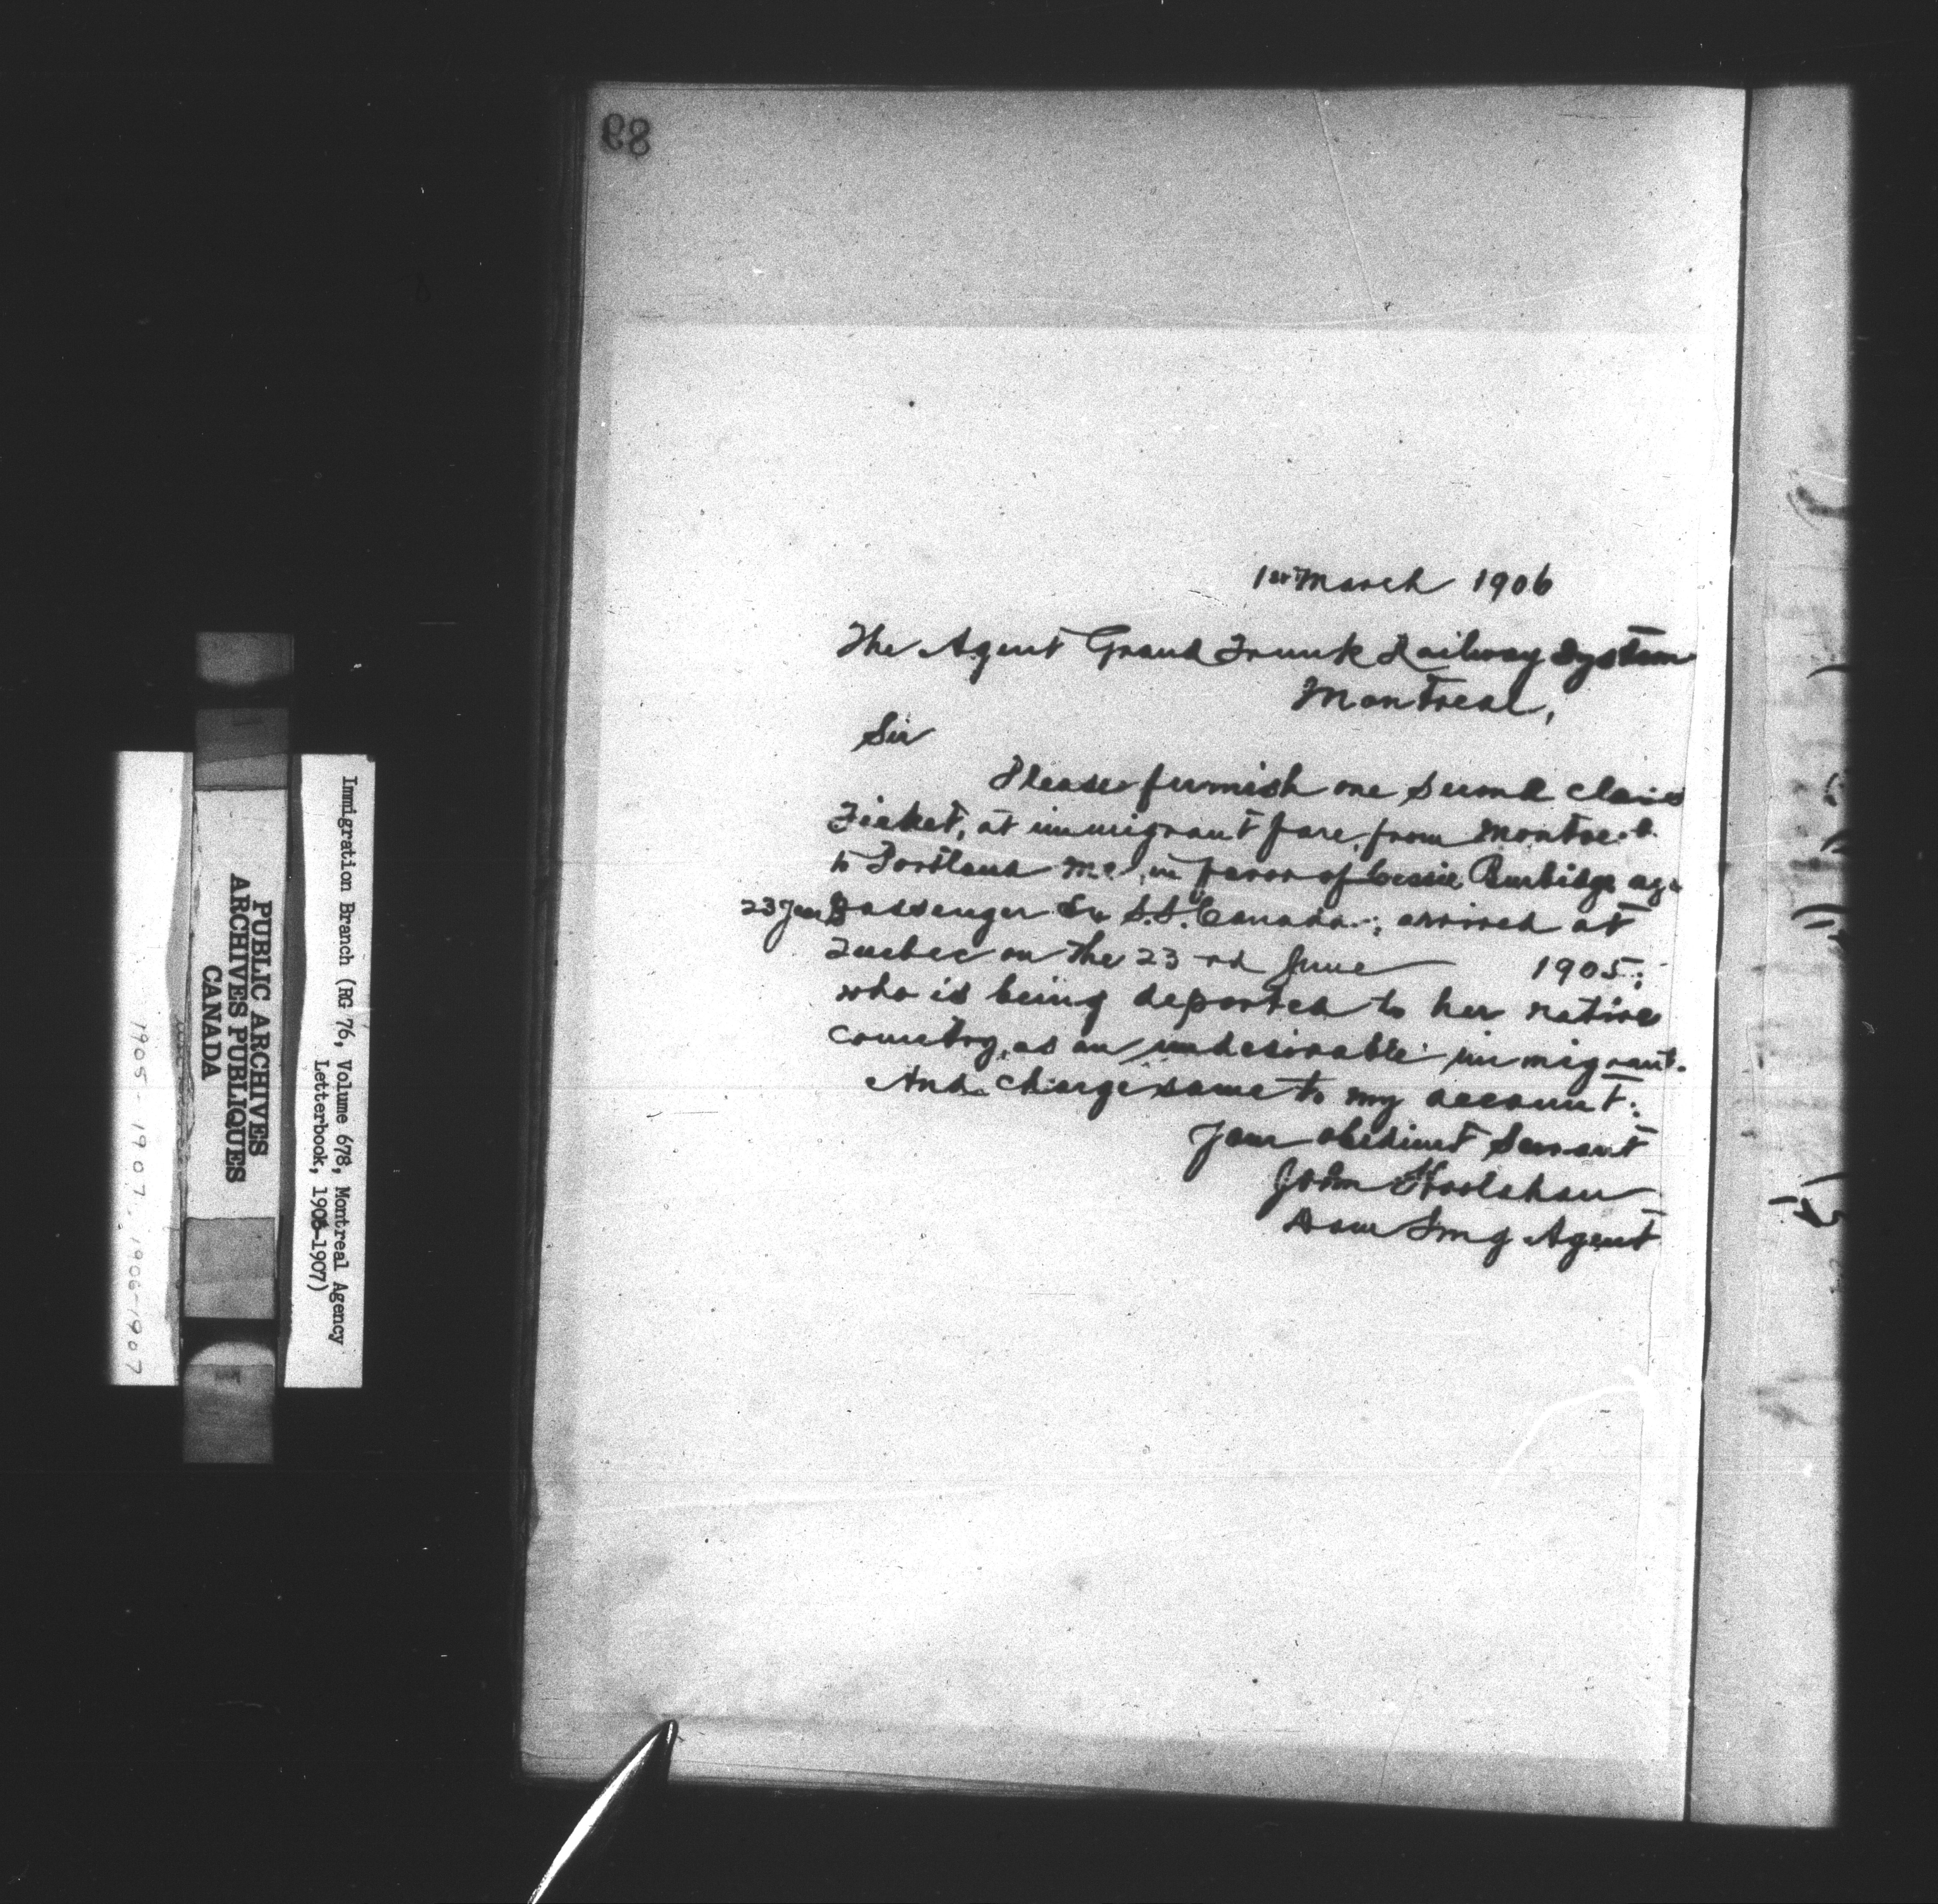 89
1st March 1906
The Agent Grand Trunk Railway System
Montreal,
Sir
Please furnish one second class
Ticket, at immigrant fare, from Montreal
to Portland Me, in favor of Cessie Burbidge age
23 Years Passenger Ex S.S. "Canada"; arrived at
Quebec on the 23rd June 1905;
who is being deported to her native
country, as an undesirable immigrant.
And charge same to my account.
Your obedient Servant
John Hoolahan
Dom Img Agent
Immigration Branch (RG 76, Volume 678, Montreal Agency
Letterbook, 1906-1907)
PUBLIC ARCHIVES
ARCHIVES PUBLIQUES
CANADA
1905-1907, 1906-1907